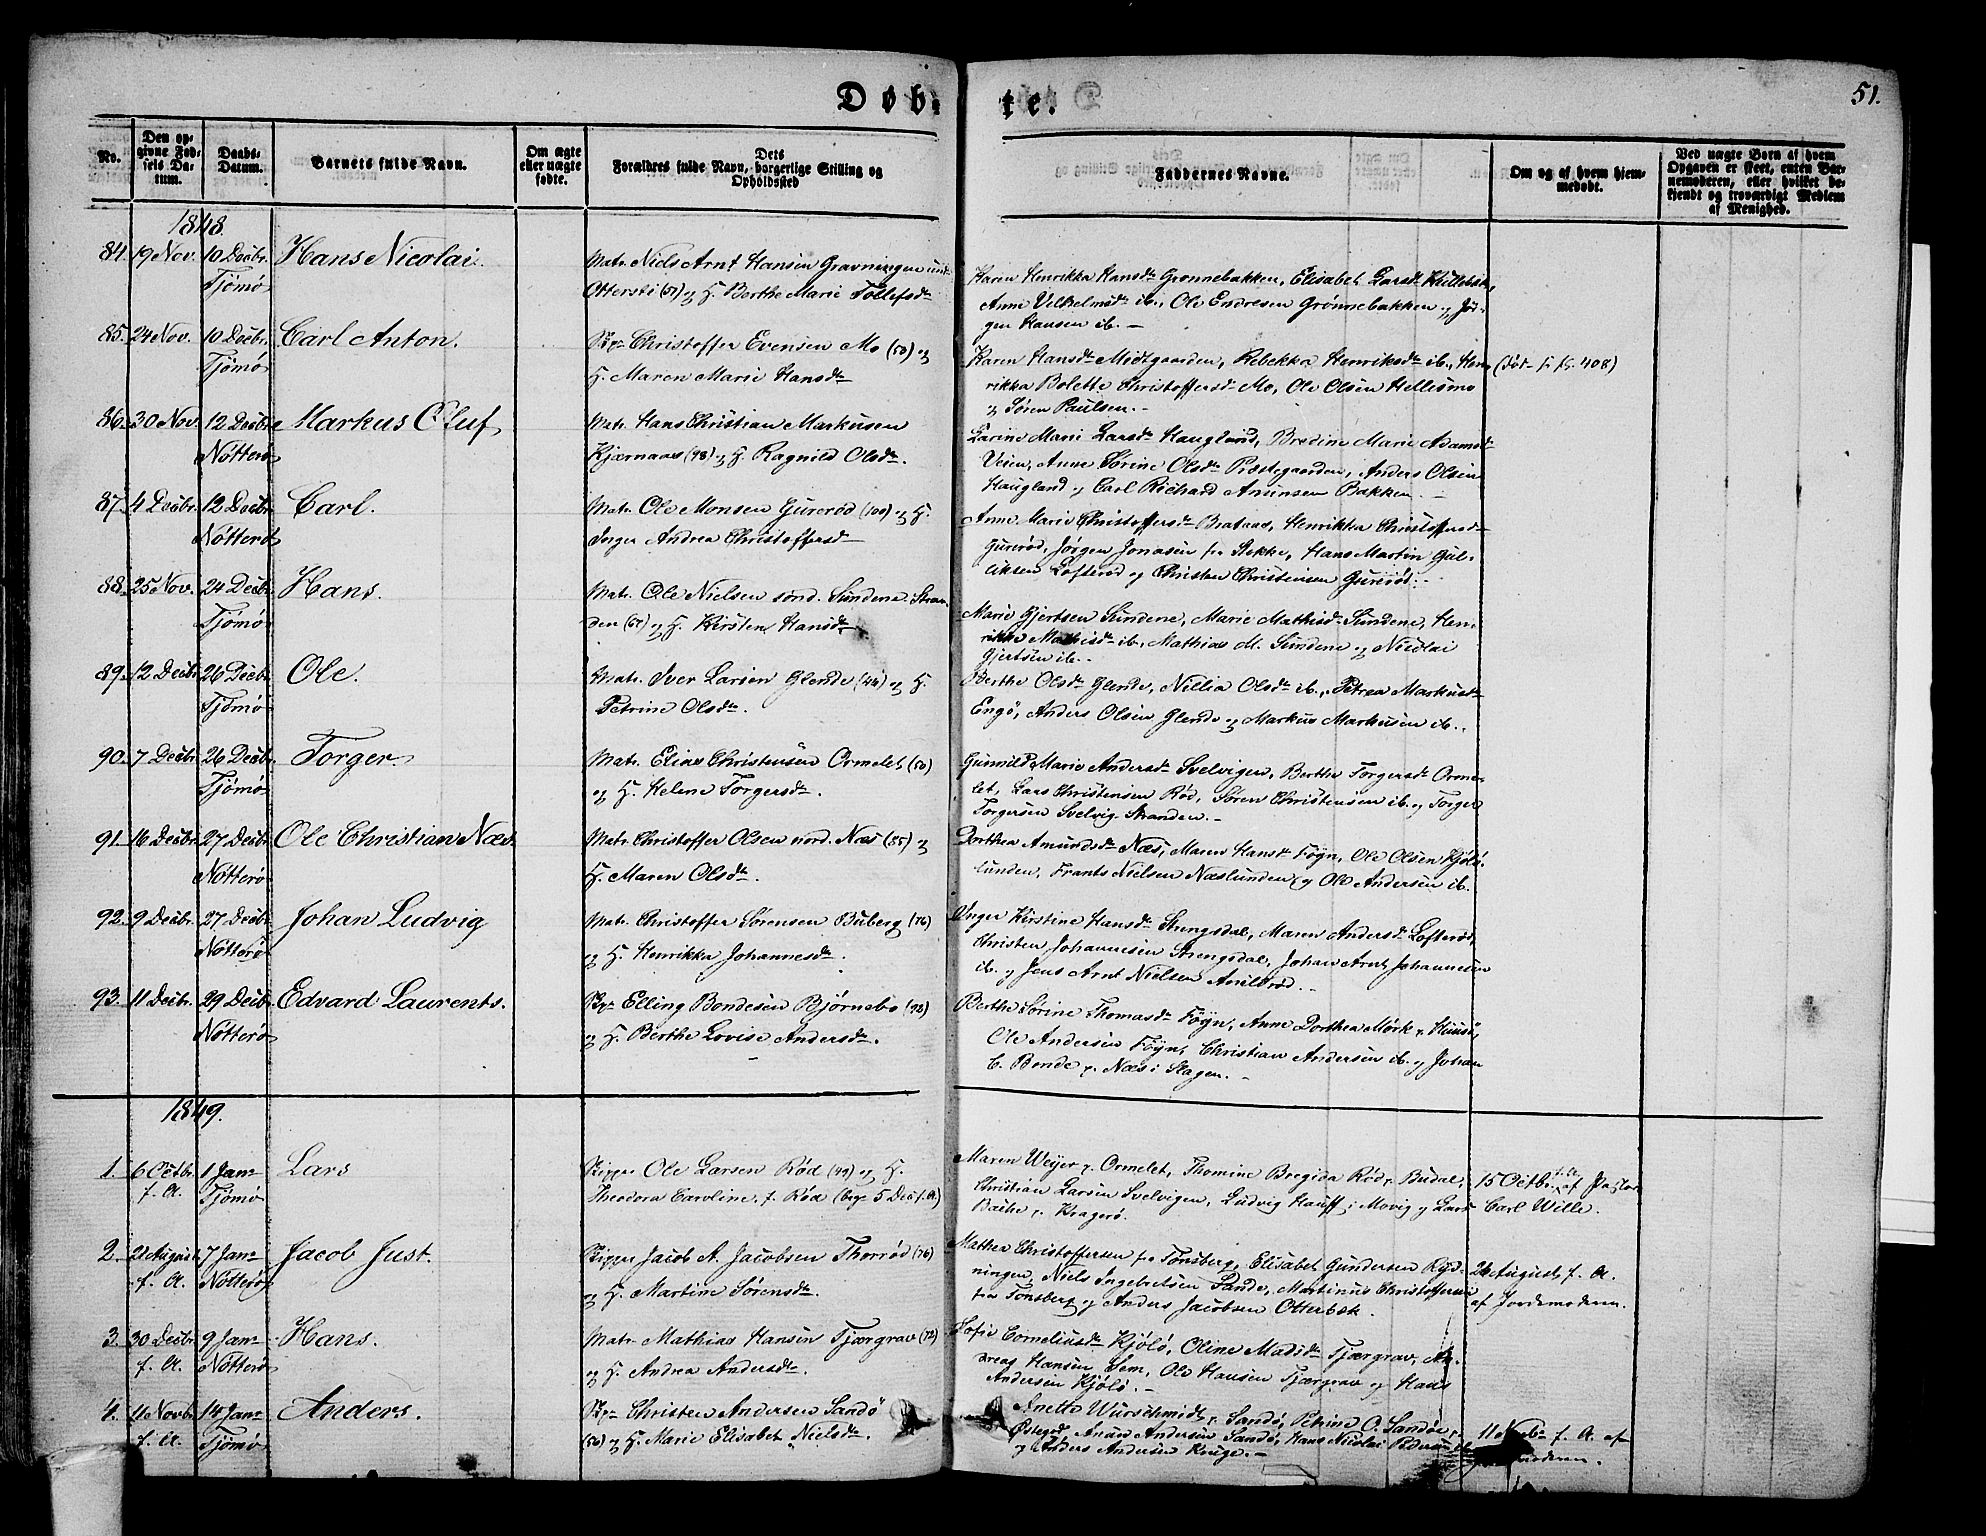 Døb-
te.
51.
No.
Den op-
givne Fød-
sels Da-
tum.
Daabs-
Datum.
Barnets fulde Navn.
Om ægte
eller uægte
fødte.
Dets
Forældres fulde Navn, borgerlige Stilling og
Opholdssted
Faddernes Navne.
Om og af hvem hjem-
medøbt.
Ved uægte Børn af hvem
Opgaven er skeet, enten Bar-
nemoderen, eller hvilket be-
kjendt og troværdigt Medlem
af Menighed.
1848.
84. 19 Nov. 10 Decbr. Hans Nicolai. Matr. Niels Arnt Hansen Gravningen und.
Tjömø Otterstö (51) og H. Berthe Marie Tollefsdtr
Karen Henrikka Hansdtr Grønnebakken, Elisabet Larsdtr
Anne Velhelmsdtr ib., Ole Endresen Grønnebakken og Jör-
gen Hansen ib. –
85. 24 Nov. 10 Decbr. Carl Anton. Christoffer Evensen Mo (50) og
Tjömø H. Maren Marie Hansdtr
Karen Hansdtr Midtgaarden, Rebekka Henriksdtr ib., Hen- 408)
rikka Bolette Christoffersdtr Mo, Ole Olsen Hellismo
og Søren Paulsen. –
86. 30 Nov. 12 Decbr. Markus Oluf Matr. Hans Christian Markusen
Nötterø Kjærnaas (98) og H. Ragnild Olsdtr.
Larine Marie Larsdtr Haugland, Bredine Marie Adamsdtr
Veien, Anne Sørine Olsdtr Præstegaarden, Anders Olsen
Haugland og Carl Richard Amunsen Bakken. –
87. 4 Decbr. 12 Decbr. Carl. Matr. Ole Monsen Gurerød (100) og H.
Nötterø Andrea Christoffersdtr
Anne Marie Christoffersdtr Brataas, Henrikka Christoffersdtr
Gurerød, Jørgen Jonasen fra Stokke, Hans Martin Gul-
liksen Lofterød og Christen Christensen Gurerød. –
88. 25 Nov. 24 Decbr. Hans. Matr. Ole Nielsen sönd. Sundene Stran-
Tjömø den (61) og H. Kirsten Hansdtr
Marie Gjertsen Sundene, Marie Mathisdtr Sundene, Hen-
rikke Mathisdtr ib., Mathias M. Sundene og Nicolai
Gjertsen ib. –
89. 12 Decbr. 26 Decbr. Ole. Matr. Iver Larsen Glende (44) og H.
Tjömø Petrine Olsdtr.
Berthe Olsdtr Glende, Nillia Olsdtr ib., Petrea Markusdtr
Engö, Anders Olsen Glende og Markus Markusen ib.
90. 7 Decbr. 26 Decbr. Torger. Matr. Elias Christensen Ormelet (50)
Tjömø og H. Helene Torgersdtr.
Gunnild Marie Andersdtr Svelvigen, Berthe Torgersdtr Orme-
let, Lars Christensen Röd, Sören Christensen ib. og Torger
Torgersen Svelvig Stranden. –
91. 16 Decbr. 27 Decbr. Ole Christian Næs. Matr. Christoffer Olsen nord. Næs (85) og
Nötterø H. Maren Olsdtr.
Dorthea Amundsdtr Næs, Maren Hansdtr Föyn, Ole Olsen Kjölö-
lunden, Frants Nielsen Næslunden og Ole Andersen ib.
92. 9 Decbr. 27 Decbr. Johan Ludvig Matr. Christoffer Sørensen Buberg (76)
Nötterø og H. Henrikka Johannesdtr.
Inger Kirstine Hansdtr Strengsdal, Maren Andersdtr Lofterød,
Christen Johannesen Strengsdal, Johan Arnt Johannesen
ib. og Jens Arnt Nielsen
93. 11 Decbr. 29 Decbr. Edvard Laurents. Elling Bondesen Björnebo (98)
Nötterø og H. Berthe Lovise Andersdtr.
Berthe Sörine Thomasdtr Föyn, Anne Dorthea Mørk
Ole Andersen Föyn, Christian Andersen ib. og Johan
C. Bonde p. Næs i Slagen. –
1849.
1. 6 Octbr. 1 Janr Lars Skipper Ole Larsen Röd (49) og H.
f. A. Tjömø Theodora Caroline, f. Röd 5 Dec. f. A.)
Maren Weyer p. Ormelet, Thomine Bregida Röd, Budal, 15 Octbr. f. A. af Pastor
Christian Larsen Svelvigen, Ludvig Hauff i Movig og Lars Carl Wille.
p. Kragerö.
2. 21 August 7 Janr Jacob Just. Skipper Jacob A. Jacobsen Thorröd (76)
f. A. Nötterø og H. Martine Sørensdtr.
Mathea Christoffersen fra Tønsberg, Elisabet Gundersen Ryd- 26 August f. A.
ningen, Niels Ingebretsen Sande, Martinus Christoffersen af Jordemoderen.
fra Tønsberg og Anders Jacobsen Otterbæk.
3. 30 Decbr. 9 Janr Hans. Matr. Mathias Hansen Tjærgrav (72)
f. A. Nötterø og H. Andrea Andersdtr.
Sofie Corneliusdtr Kjölö, Oline Madsdtr Tjærgrav, An-
dreas Hansen Sem, Ole Hansen Tjærgrav og Hans
Andersen Kjölö. –
4. 11 Novb. 14 Janr Anders. Christen Andersen Sandö
f. A. Tjömø (56) og H. Marie Elisabet Nielsdtr.
Anette Wurschmidt p. Sandö, Petrine O. Sandöe, 11 Novbr f. A. af
Andersen Sandö, Hans Nicolai
og Anders Andersen Kruge. –